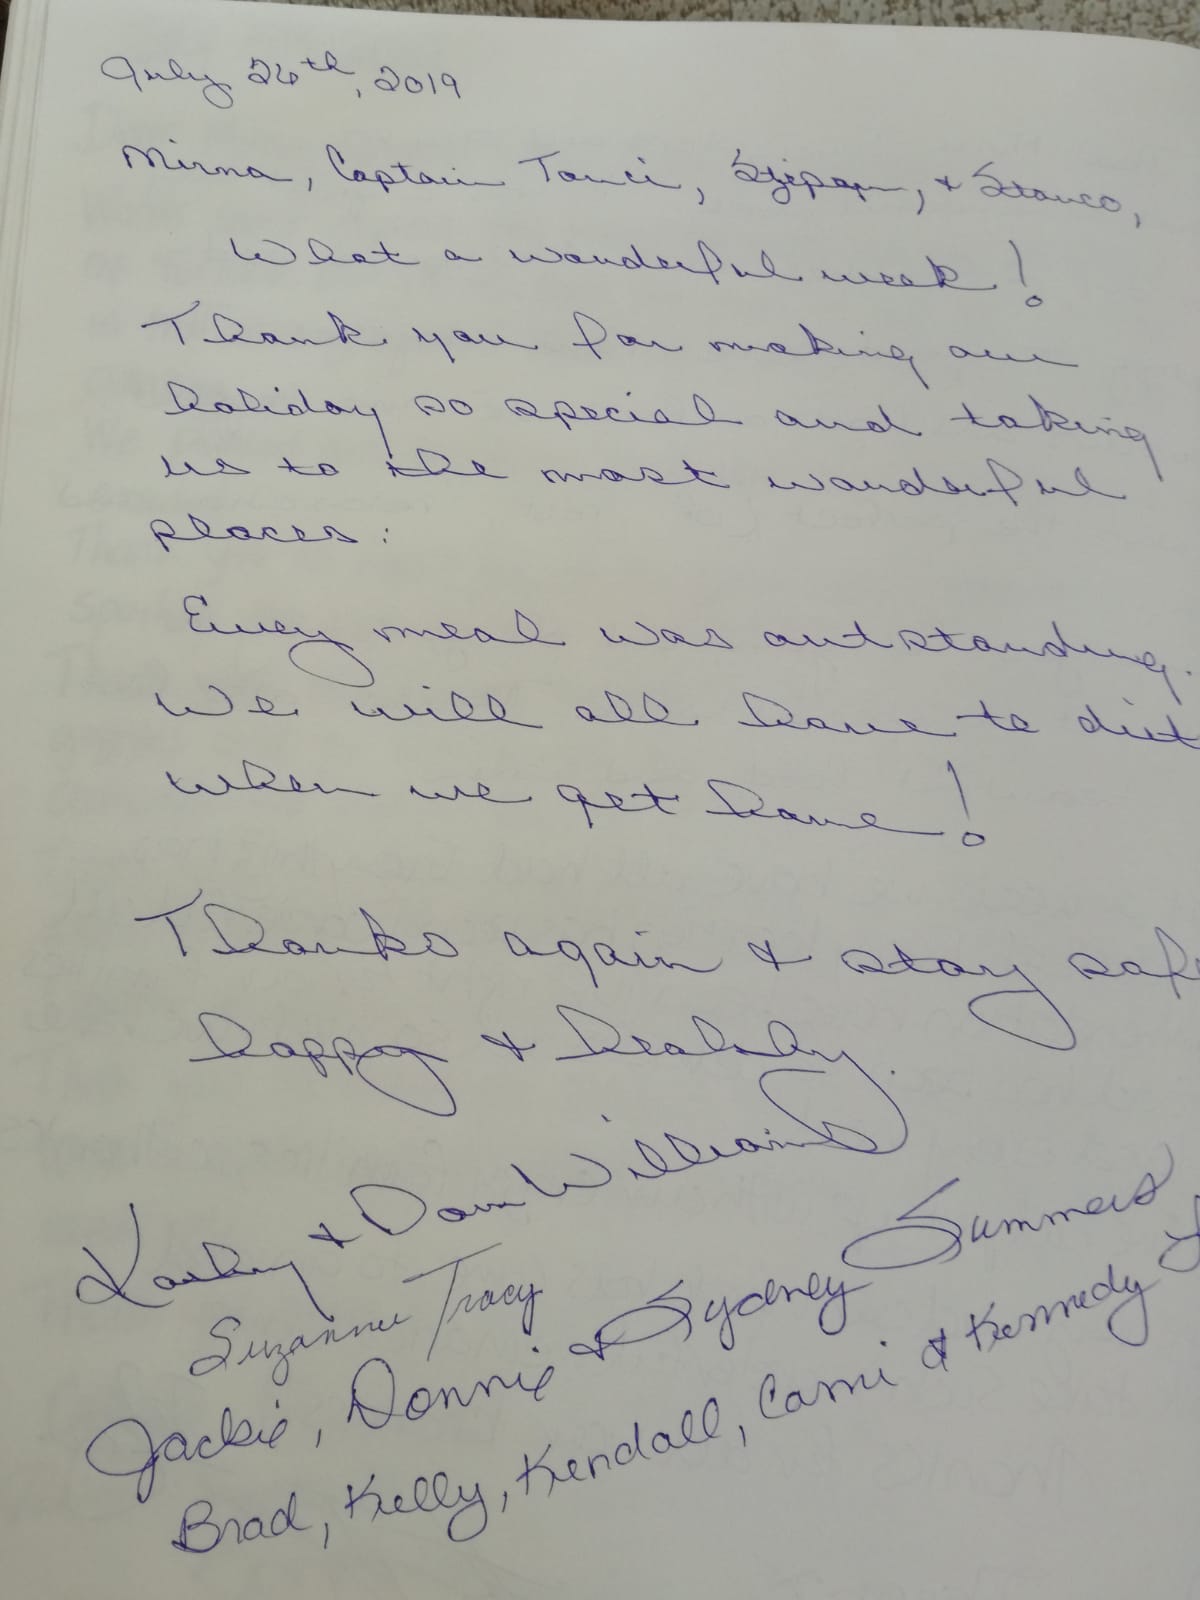 July 26th, 2019
Mirna, Captain Tonci, Stjepan, & Stanco,
What a wonderful week!
Thank you for making our
holiday so special and taking
us to the most wonderful
places.
Every meal was outstanding.
We will all have to diet
when we get home!
Thanks again & stay safe
happy & healthy.
Kathy & Dave Williams
Suzanne Tracy
Jackie, Donnie & Sydney Summers
Brad, Kelly, Kendall, Cami & Kennedy